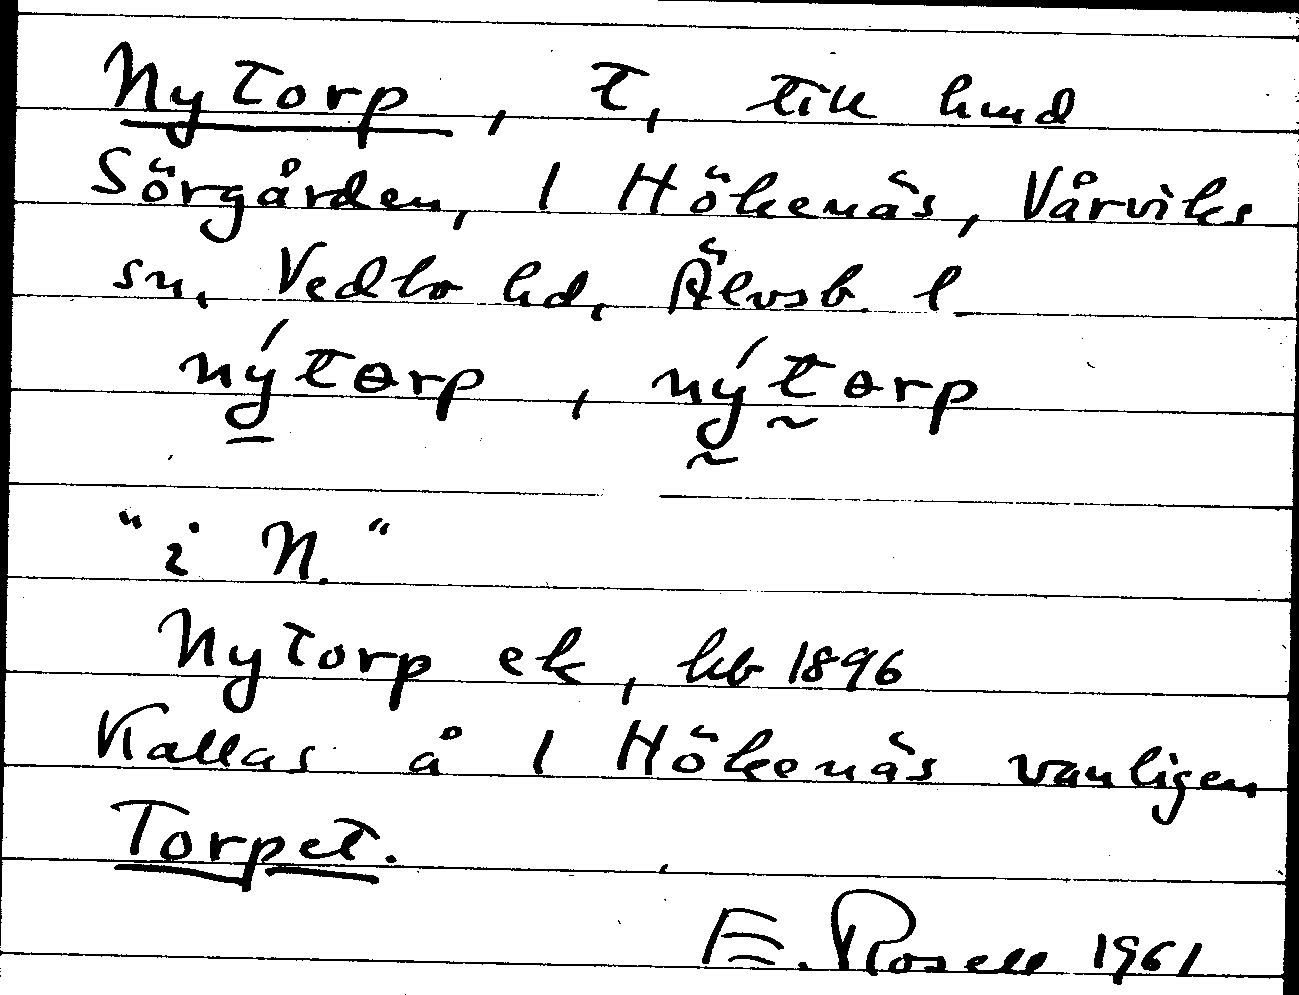 Nytorp, t, till hmd
Sörgården, 1 Hökenäs, Vårviks
sn, Vedbo hd, Älvsb. l
nýtɵrp, nýtɵrp
"i N."
Nytorp ek, hb 1896
Kallas å 1 Hökenäs vanligen
Torpet.
E. Rosell 1961